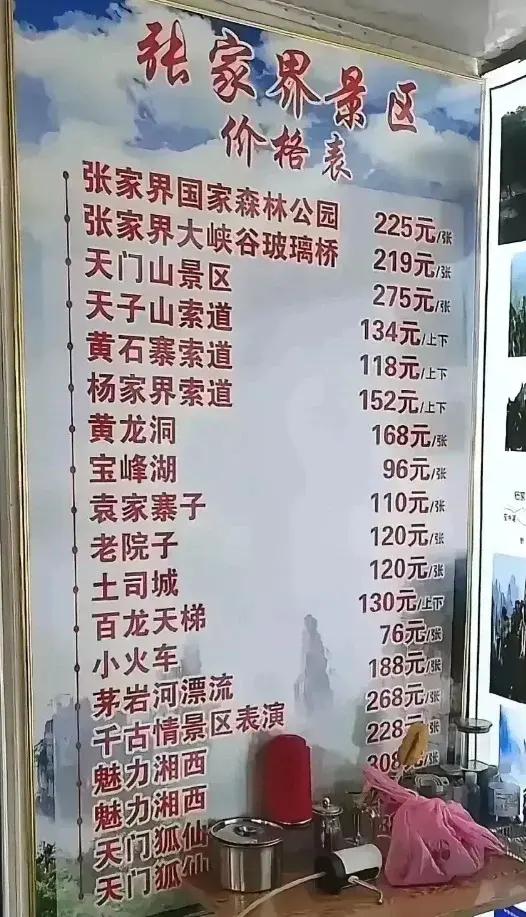 张家界景区
价格表
张家界国家森林公园 225元/张
张家界大峡谷玻璃桥 219元/张
天门山景区 275元/张
天子山索道 134元/上下
黄石寨索道 118元/上下
杨家界索道 152元/上下
黄龙洞 168元/张
宝峰湖 96元/张
袁家寨子 110元/张
老院子 120元/张
土司城 120元/张
百龙天梯 130元/上下
小火车 76元/张
茅岩河漂流 188元/张
千古情景区表演 268元/张
魅力湘西 228元/张
魅力湘西
天门狐仙
天门狐仙